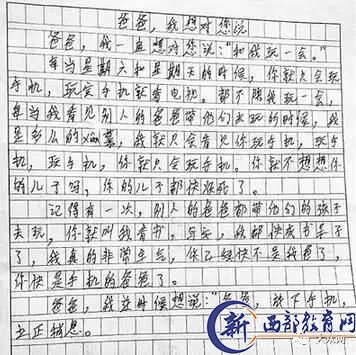 爸爸,我想对您说
爸爸,我一直想对您说:"和我玩一会。"
每当星期六和星期天的时候,你就只会玩
手机,玩完手机就看电视。都不陪我玩一会,
每当我看见别人的爸爸带他们去玩的时候,我
是多么的xian慕,我就只会看见你玩手机,玩手
机,玩手机,你就只会玩手机。你就不想想你
的儿子吗,你的儿子都快疯死了。
记得有一次,别人的爸爸都带他们的孩子
去玩,你就叫我看书,写字,我都快成书呆子
了,我真的非常生气,你已经快不是我爸了,
你快是手机的爸爸了。
爸爸,我这时候想说:"爸爸,放下手机,
新 西部教育网